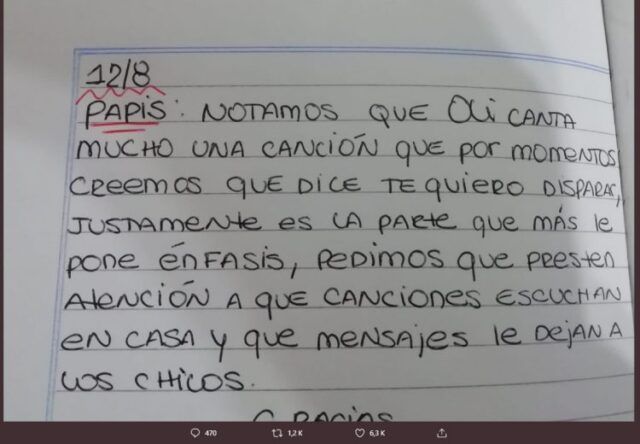 12/8
PAPIS: NOTAMOS QUE Oli CANTA
MUCHO UNA CANCIÓN QUE POR MOMENTOS
CREEMOS QUE DICE TE QUIERO DISPARAR,
JUSTAMENTE ES LA PARTE QUE MÁS LE
PONE ÉNFASIS, PEDIMOS QUE PRESTEN
ATENCIÓN A QUE CANCIONES ESCUCHAN
EN CASA Y QUE MENSAJES LE DEJAN A
LOS CHICOS.
GRACIAS
470 1,2K 6,3K